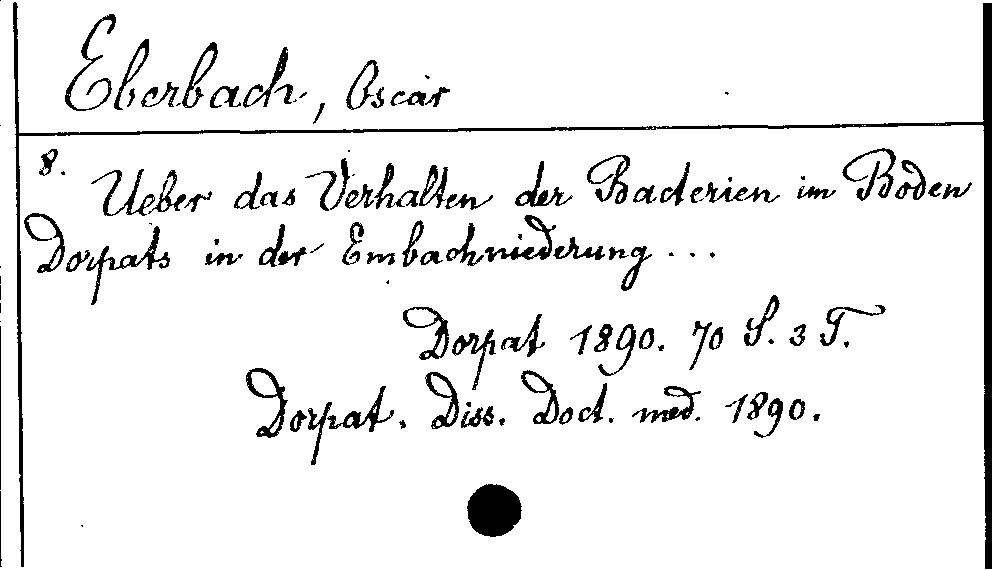 Eberbach, Oscar
8.
Ueber das Verhalten der Bacterien im Boden
Dorpats in der Embachniederung ...
Dorpat 1890. 70 S. 3 T.
Dorpat. Diss. Doct. med. 1890.